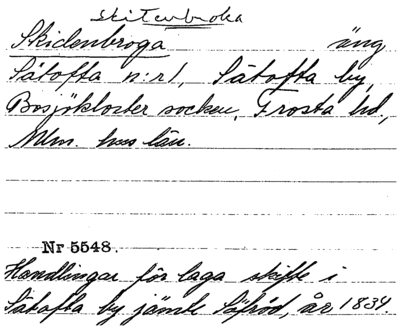 skitenbroka
Skidenbroga äng
Sätofta n:r 1, Sätofta by,
Bosjökloster socken, Frosta hd,
Mlm. hus län.
Nr 5548.
Handlingar för laga skifte i
Sätofta by jämte Säfröd, år 1834.